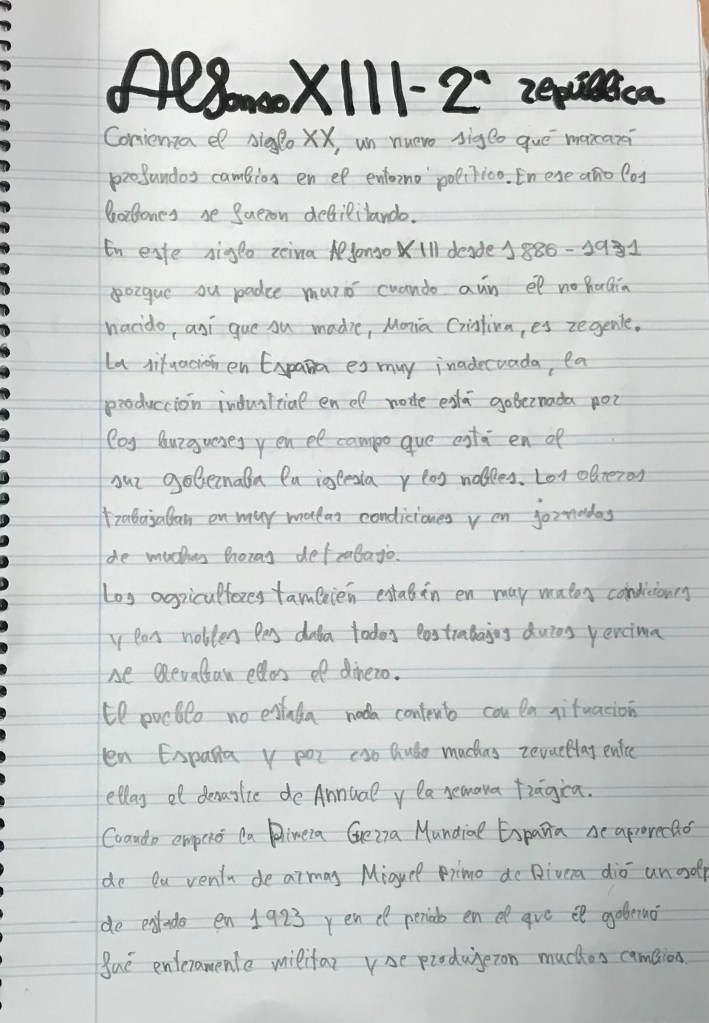 Alfonso XIII-2ª república
Comienza el siglo XX, un nuevo siglo qué marcará
profundos cambios en el entorno político. En ese año los
borbones se fueron debilitando.
En este siglo reina Alfonso XIII desde 1886-1931
porque su padre murió cuando aún él no había
nacido, así que su madre, María Cristina, es regente.
La situación en España es muy inadecuada, la
producción industrial en el norte está gobernada por
los burgueses y en el campo que está en el
sur gobernaba la iglesia y los nobles. Los obreros
trabajaban en muy malas condiciones y en jornadas
de muchas horas de trabajo.
Los agricultores también estabán en muy malas condiciones
y los nobles les daba todos los trabajos duros y encima
se llevaban ellos el dinero.
El pueblo no estaba nada contento con la situación
en España y por eso hubo muchas revueltas entre
ellas el desastre de Annual y la semana trágica.
Cuando empezó la Primera Guerra Mundial España se aprovechó
de la venta de armas Miguel Primo de Rivera dió un golp
de estado en 1923 y en el periodo en el que él gobernó
fué enteramente militar y se produjeron muchos cambios.